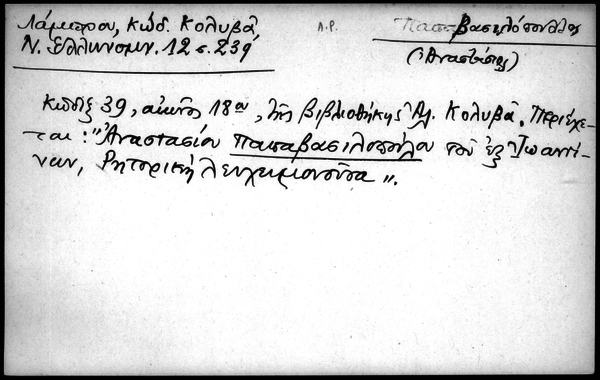 Λάμπρου, Κώδ. Κολυβᾶ,
Ν. Ἑλληνομν. 12 σ. 239
Λ.Ρ.
Παπαβασιλόπουλλος
(Ἀναστάσιος)
Κώδιξ 39, αἰῶνος 18ου, τῆς βιβλιοθήκης Ἀλ. Κολυβᾶ. Περιέχε-
ται: "Ἀναστασίου Παπαβασιλοπούλου τοῦ ἐξ Ἰωαννί-
νων, Ῥητορικὴ λευχειμονοῦσα".